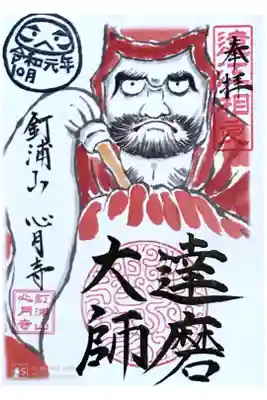 奉拝
達磨
大師
令和元年
10月
釘浦山 心月寺
釘浦山
心月寺